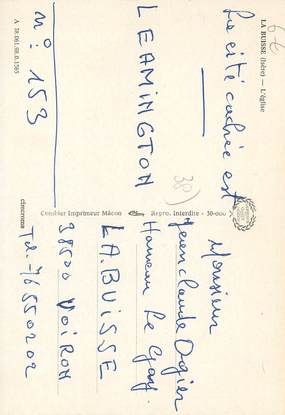 LA BUISSE (Isère) — L'église
6 €
La cité cachée est
LEAMINGTON
n° : 153
A 38.061.00.0.1585
38)
Combier Imprimeur Mâcon
Repro. Interdite - 30-000
cimcrome
Monsieur
Jean claude Dogier
Hameau Le Gay.
LA.BUISSE
38500 VOIRON
Tel.-76550202